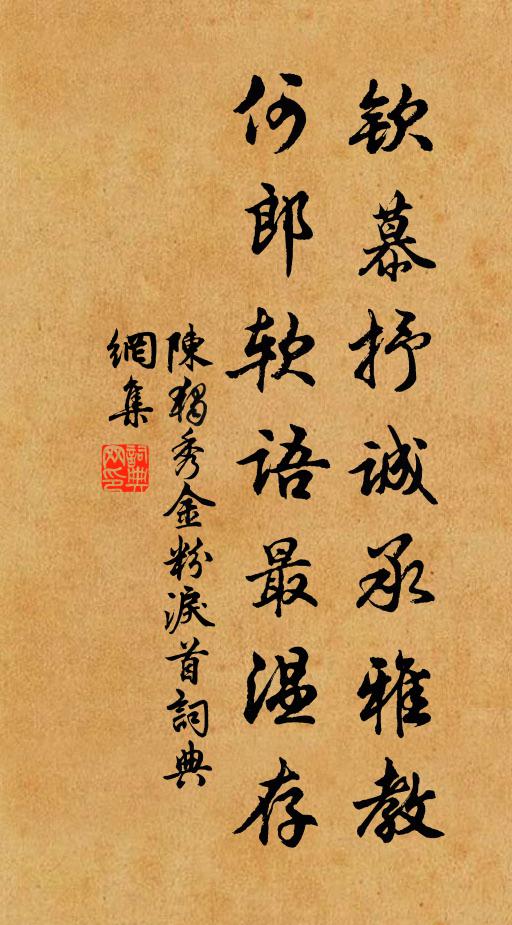 欽慕抒誠承雅教
何郎軟語最溫存
陳獨秀金粉淚首詞典
網集
詞典
网印